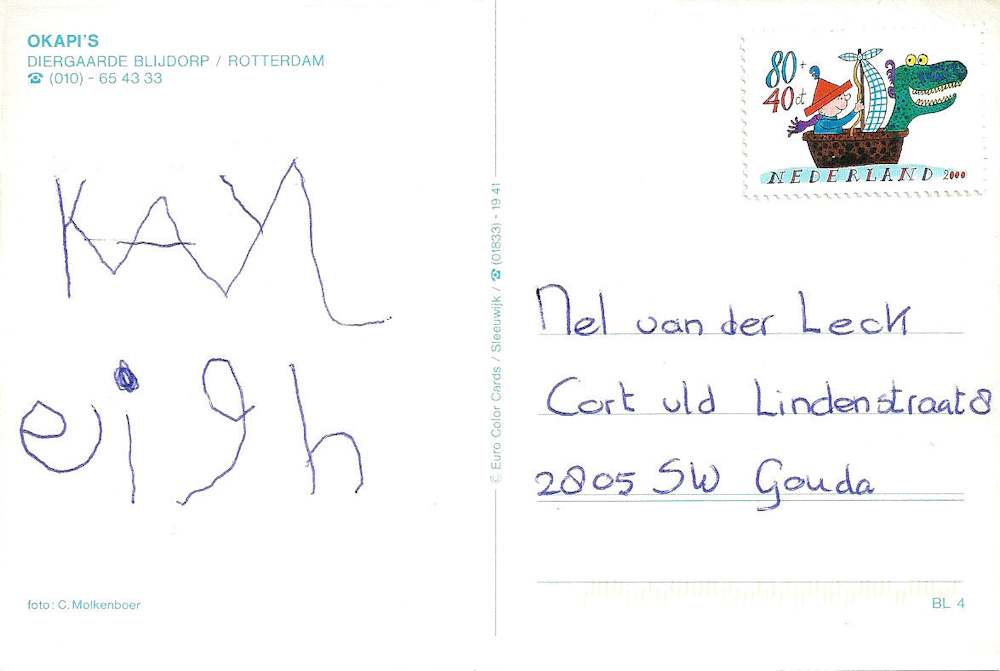 OKAPI'S
DIERGAARDE BLIJDORP / ROTTERDAM
☎ (010) - 65 43 33
KAYL
eigh
foto: C. Molkenboer
© Euro Color Cards / Sleeuwijk / ☎ (01833) - 19 41
80+
40 ct
NEDERLAND 2000
Mel van der Leck
Cort vld Lindenstraat 8
2805 SW Gouda
BL 4